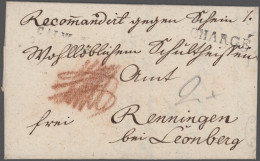 Recom̄andirt gegen Schein 1.
CALW
CHARGÉ
Wohllöblichem Schultheissen
Amt
frei Renningen
bei Leonberg